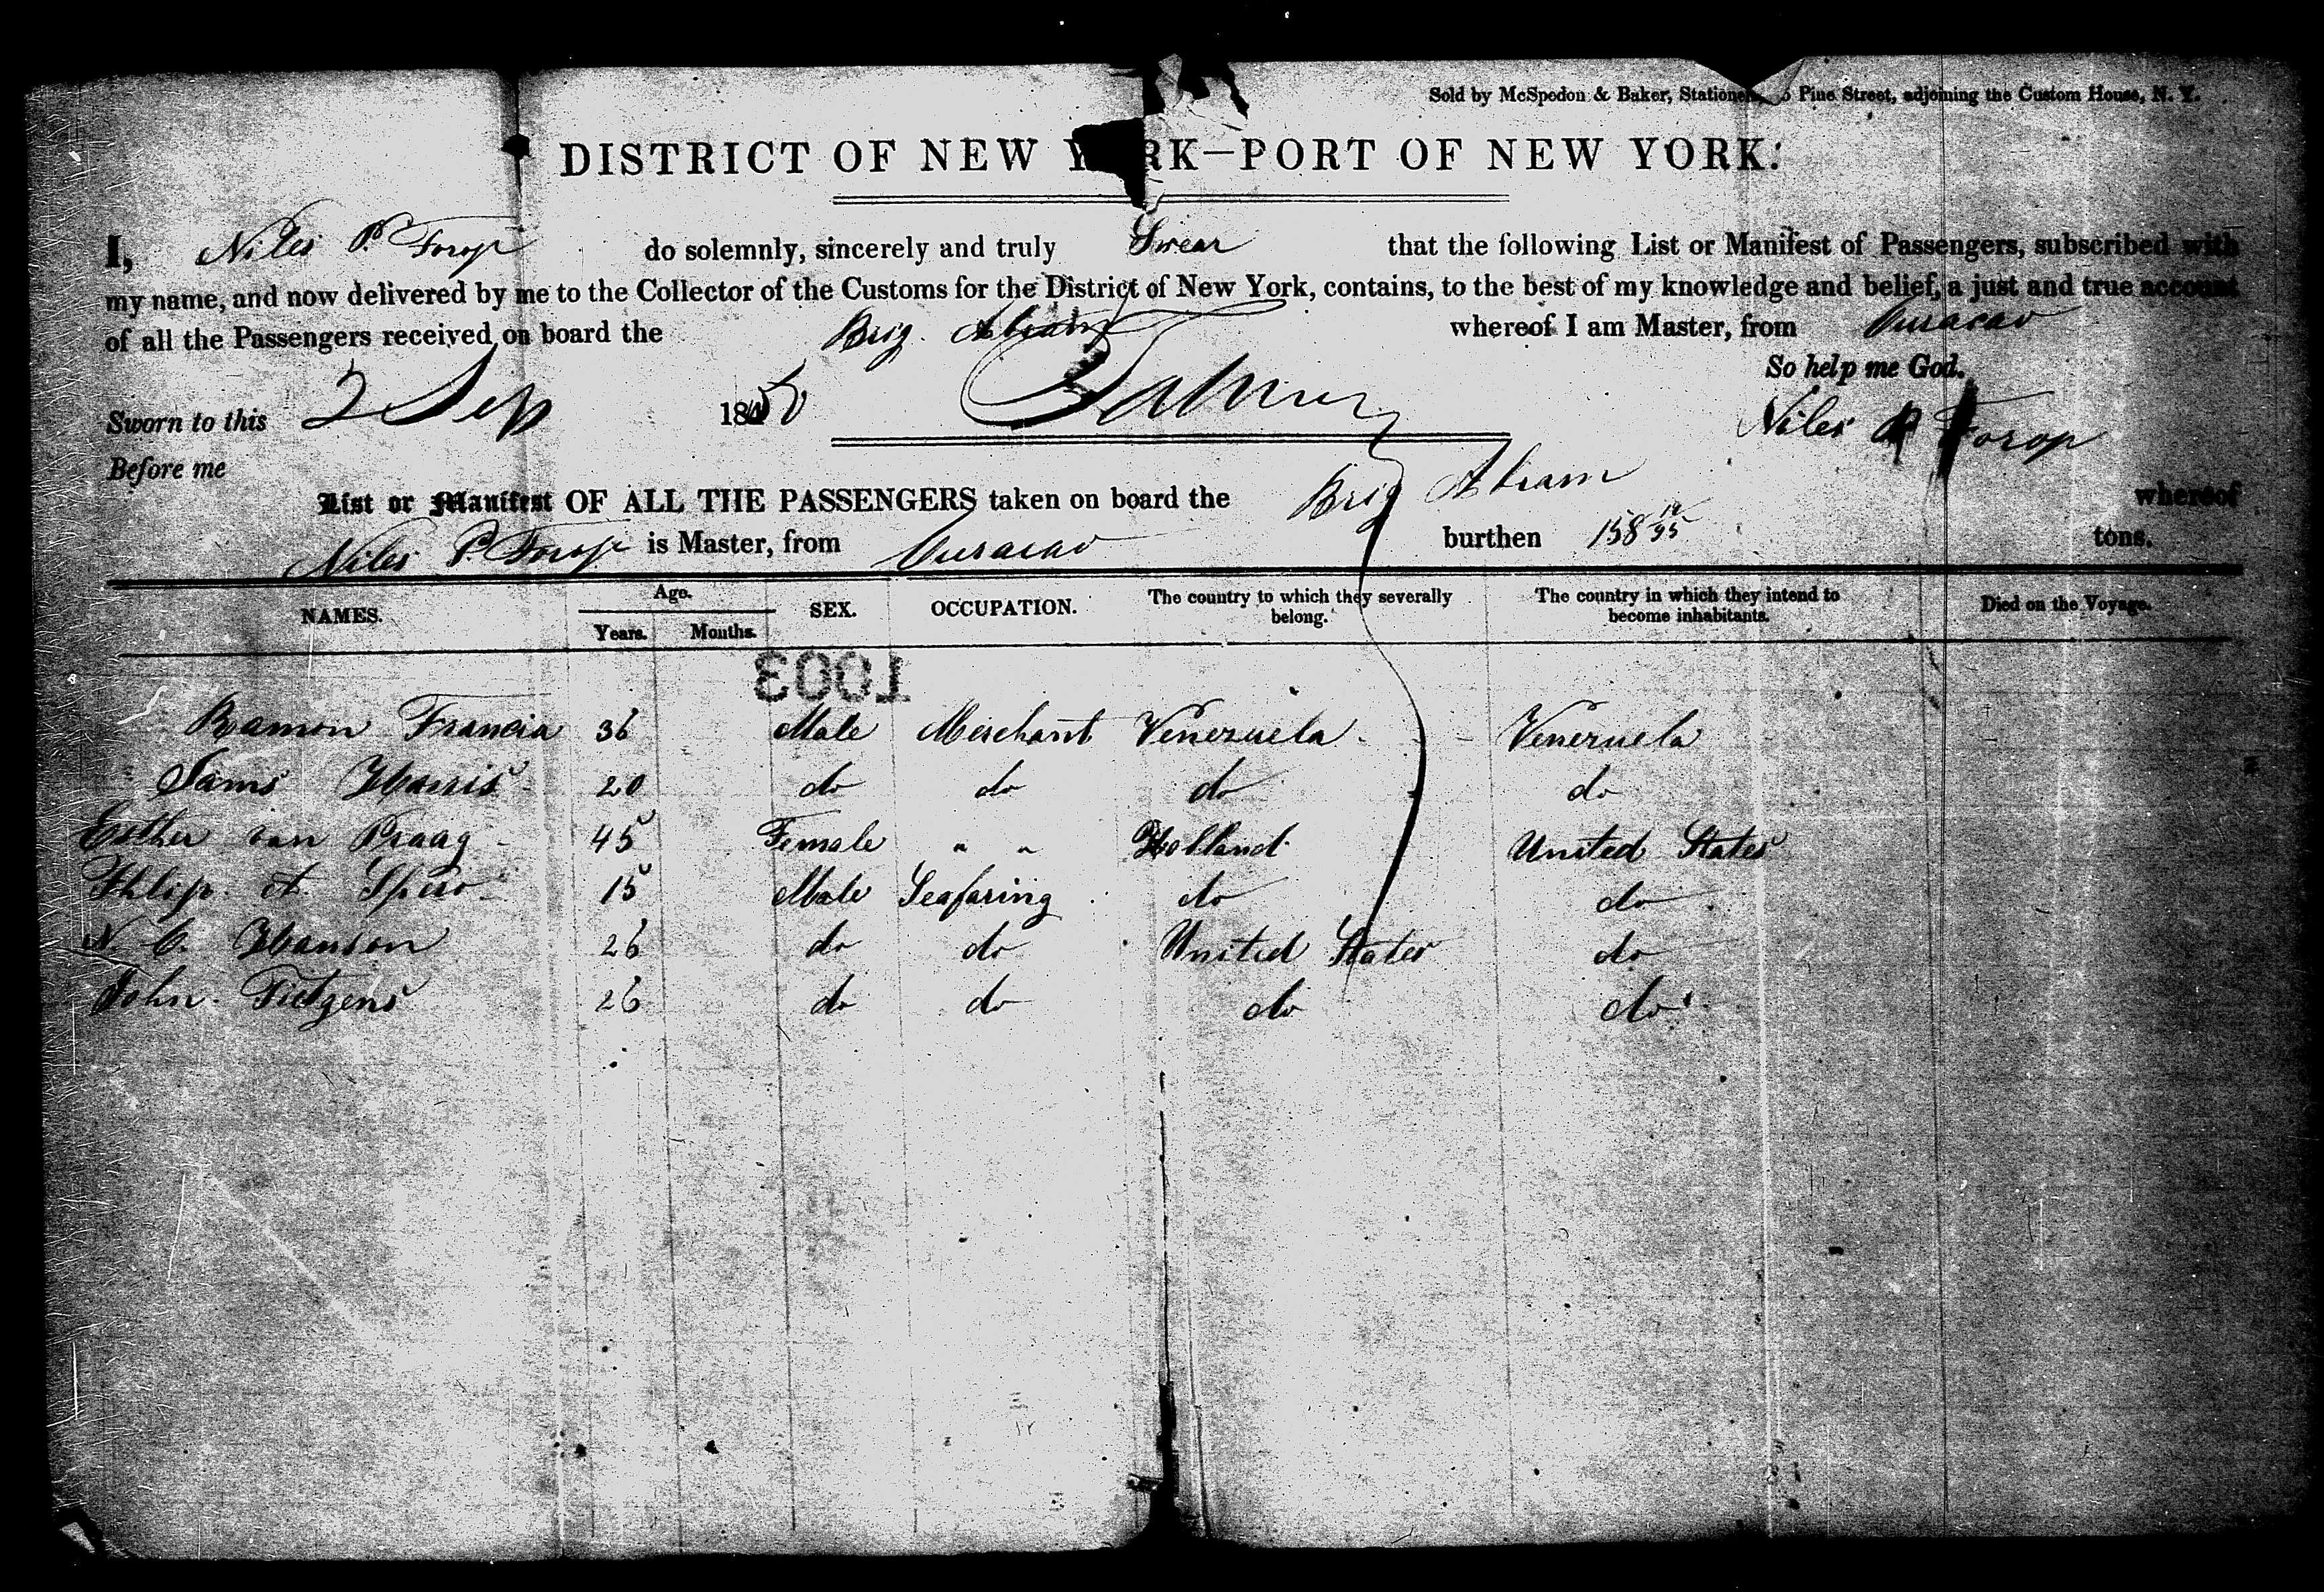 Sold by McSpedon & Baker, Stationers, Pine Street, adjoining the Custom House, N. Y.
DISTRICT OF NEW YORK—PORT OF NEW YORK.
I, Niles P. do solemnly, sincerely and truly Swear that the following List or Manifest of Passengers, subscribed with
my name, and now delivered by me to the Collector of the Customs for the District of New York, contains, to the best of my knowledge and belief, a just and true account
of all the Passengers received on board the Brig. Abram whereof I am Master, from Curacao
So help me God.
Sworn to this 2 Sep 1850
Niles P
Before me
List or Manifest OF ALL THE PASSENGERS taken on board the Brig Abram whereof
Niles P. is Master, from Curacao burthen 158 tons.
NAMES. Age. Years. Months. SEX. OCCUPATION. The country to which they severally belong. The country in which they intend to become inhabitants. Died on the Voyage.
1003
Ramon Francia 36 Male Merchant Venezuela Venezuela
Sams Harris 20 do do do do
Esther van Praag 45 Female " " Holland United States
Phlip A 15 Male Seafaring do do
N. C. Hanson 26 do do United States do
John Tietgens 26 do do do do